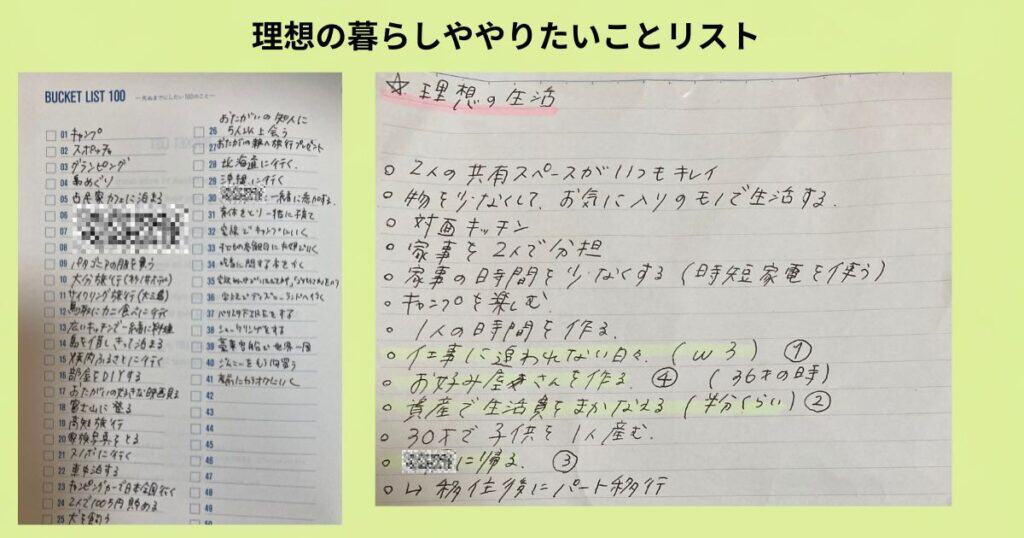 理想の暮らしややりたいことリスト
BUCKET LIST 100 ―死ぬまでにしたい100のこと―
01 キャンプ
02 スポッチャ
03 グランピング
04 島めぐり
05 古民家カフェに泊まる
06
07
08
09 パタゴニアの服を買う
10 大分旅行
11 サイクリング旅行(大三島)
12 鳥取にカニ食べに行く
13 広いキッチンで一緒に料理
14 島を貸しきって泊まる
15 焼肉ふるさとに行く
16 部屋をDIYする
17 おたがいの好きな映画見る
18 富士山に登る
19 高知旅行
20 家族写真をとる
21 スノボに行く
22 車中泊する
23 キャンピングカーで日本全国行く
24 2人で100万円貯める
25 犬を飼う
26 おたがいの知人に
5人以上会う
27 おたがいの親へ旅行プレゼント
28 北海道に行く
29 沖縄に行く
30 に一緒に参加する
31 育休をとり一緒に子育て
32 家族でキャンプにいく
33
34
35
36
37
38
39 豪華客船で世界一周
40
41
42
43
44
45
46
47
48
49
50
☆理想の生活
○ 2人の共有スペースがいつもキレイ
○ 物を少なくして、お気に入りのモノで生活する.
○ 対面キッチン
○ 家事を2人で分担
○ 家事の時間を少なくする(時短家電を使う)
○ キャンプを楽しむ.
○ 1人の時間を作る.
○ 仕事に追われない日々.(w3) ①
○ お好み屋さんを作る. ④ (36才の時)
○ 資産で生活費をまかなえる(半分くらい)②
○ 30才で子供を1人産む.
○ に帰る. ③
○ ↳ 移住後にパート移行